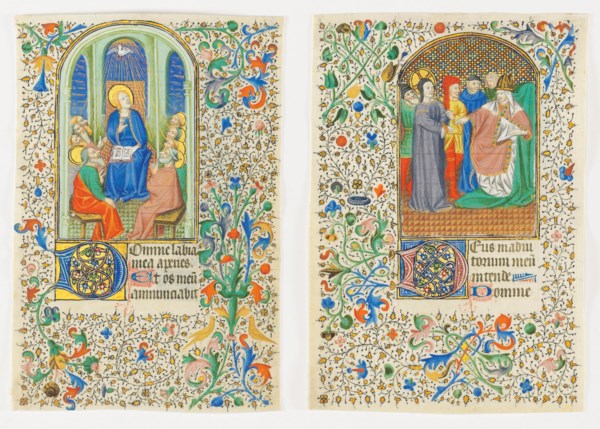 Domine labia
mea aperies.
Et os meū
annunciabit
Deus in adiu
torium meū
intende
Domine